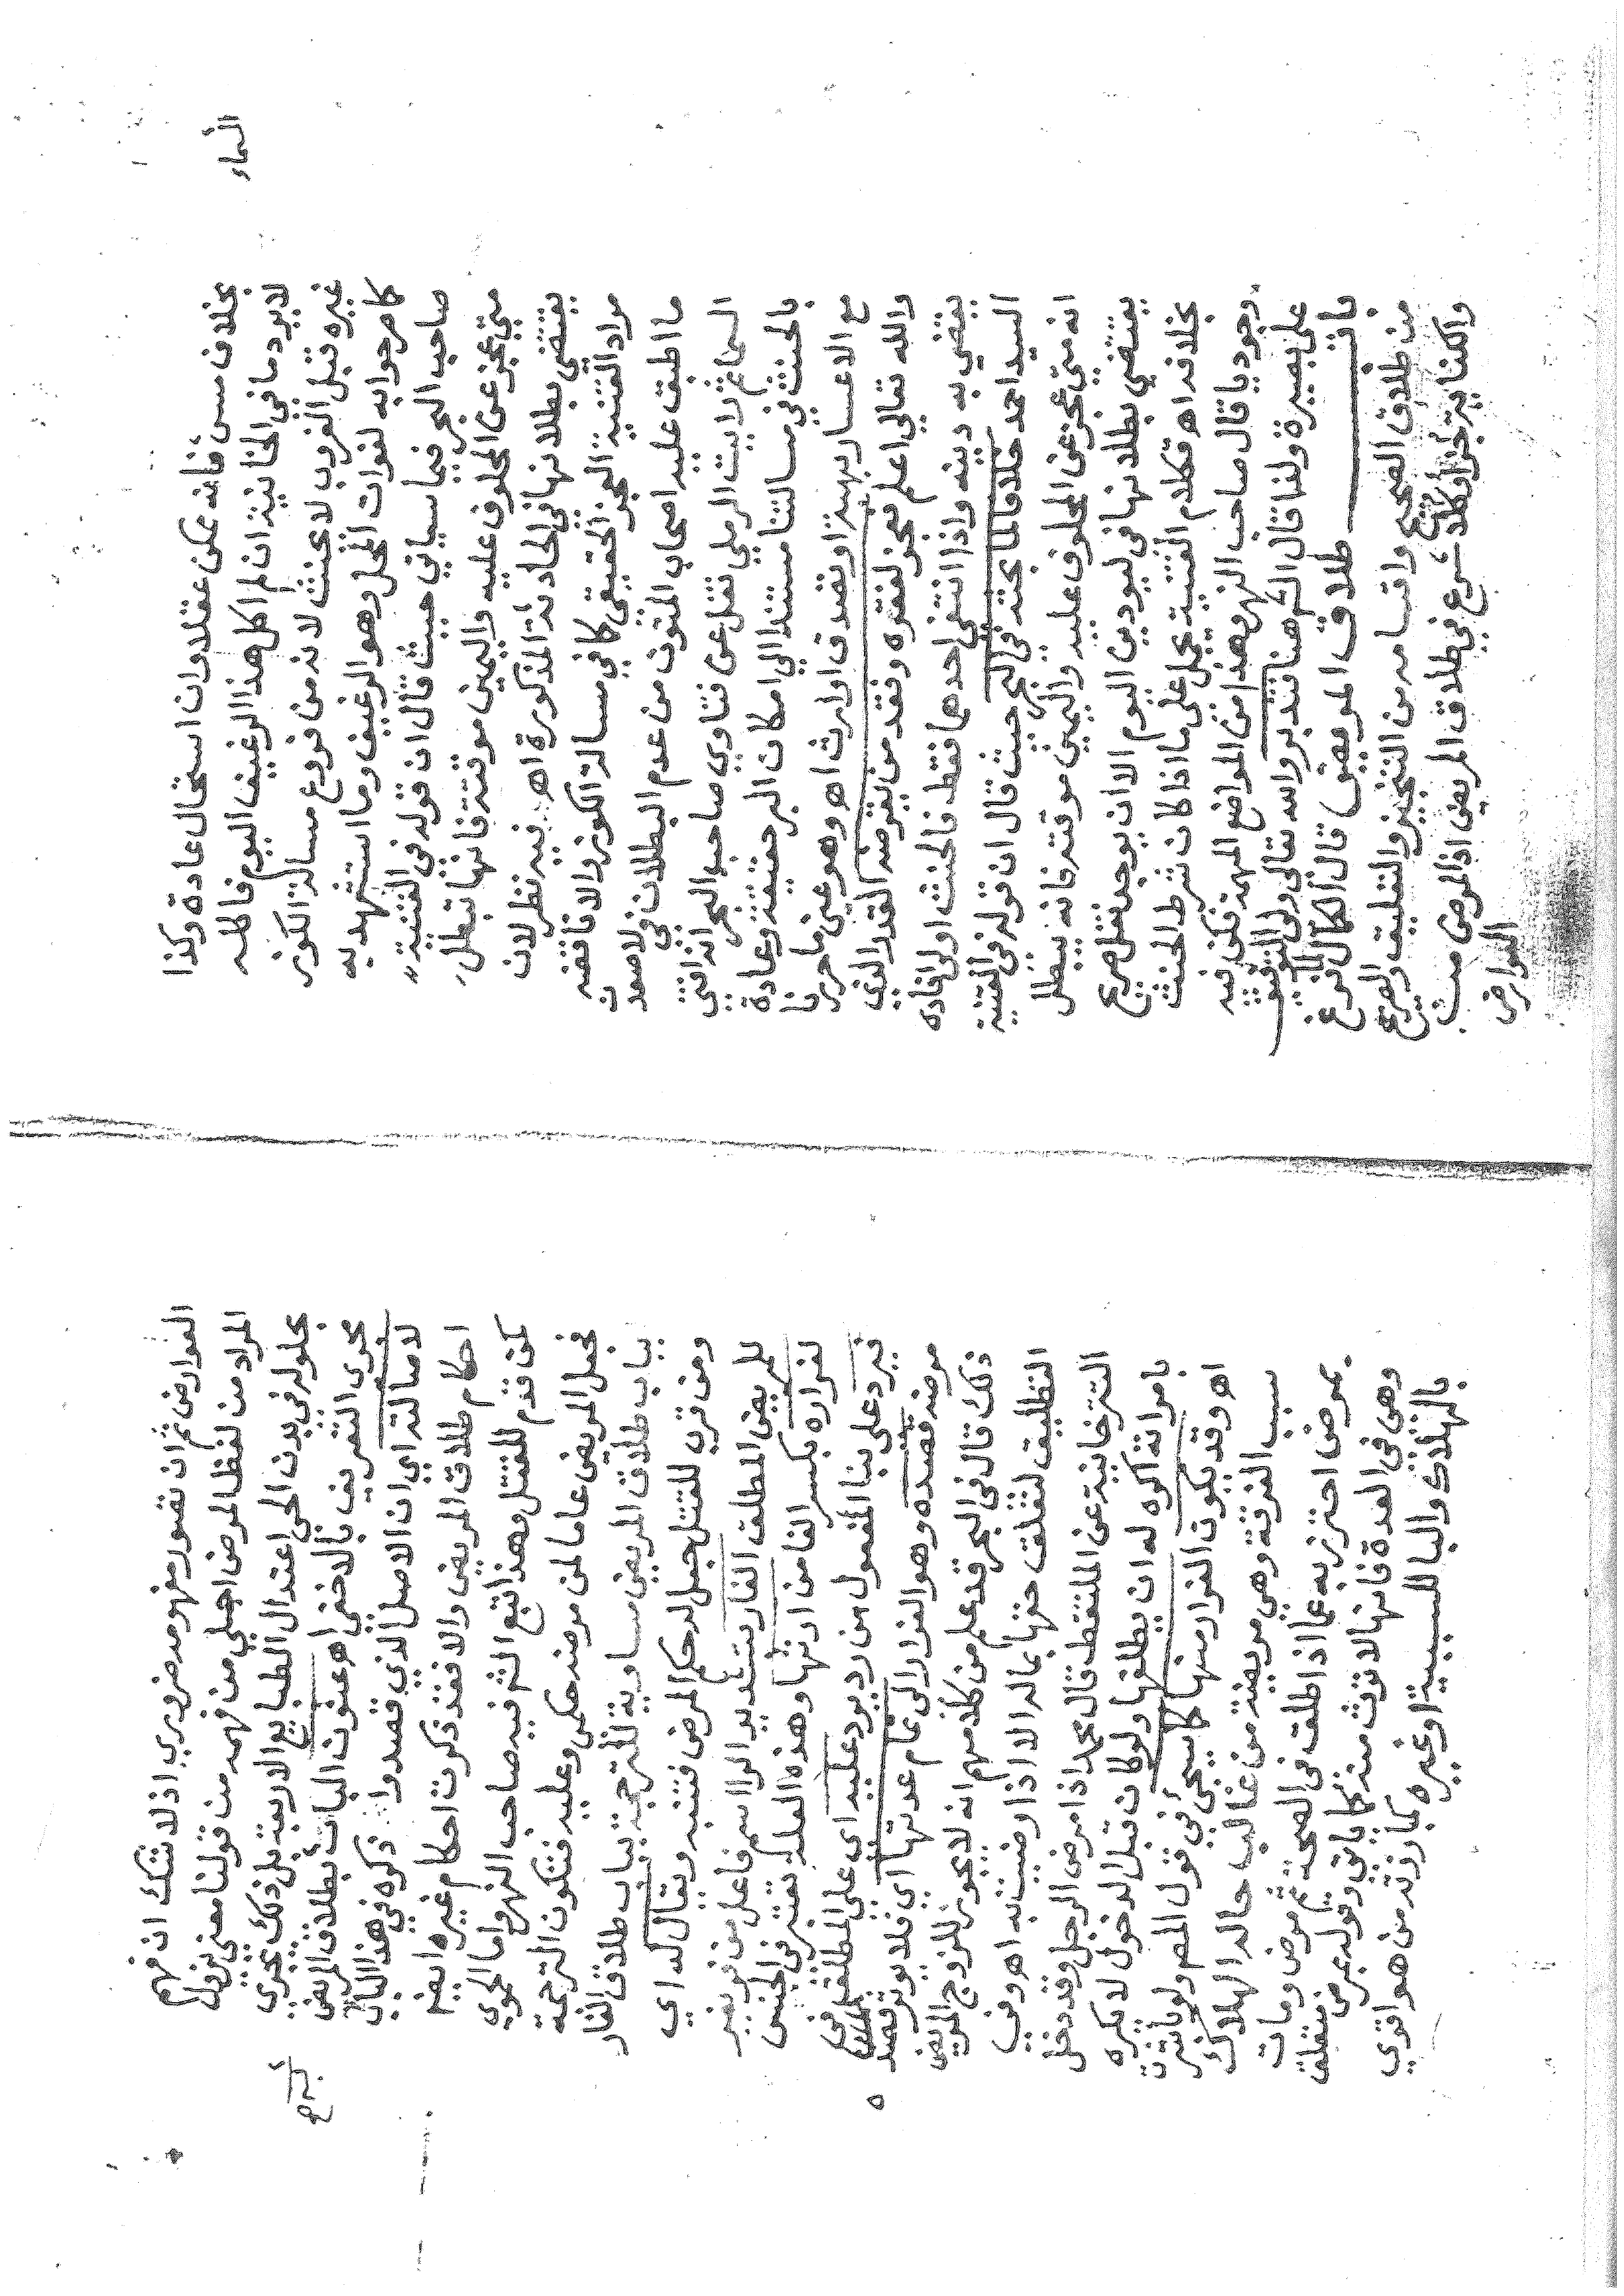 بخلاف مس السماء فانه ممكن عقلا وان استحال عادة وكذا
لا يرد ما في الخانية ان لم اكل هذا الرغيف اليوم فاكله
غيره قبل الغروب لا يحنث لانه من فروع مسالة الكوز
كما مر جوابه لفوات المحل وهو الرغيف وما استشهد به
صاحب البحر فيما سياتي حيث قال ان قوله في القنية
متى عجز عن المحلوف عليه واليمين موقتة فانها تبطل
يقتضي بطلانها في الحادثة المذكورة اه فيه نظر لان
مراد القنية العجز الحقيقي كما في مسالة الكوز والا ناقضه
ما اطبق عليه اصحاب المتون من عدم البطلان في لاصعدن
السما ثم رايت الرملي نقل عن فتاوي صاحب البحر انه افتى
بالحنث في مسالتنا مستندا الي امكان البر حقيقة وعادة
مع الاعسار بهبة او تصدق او ارث اه وهو عين ما حررنا
والله تعالي اعلم فعجز لفقره وفقد من يقرضه القدر الذي
يقضي به دينه واذا انتفى احدهما فقط فالحنث اولى افاده
السيد احمد خلافا لما بحثه في البحر حيث قال ان قوله في القنية
انه متى عجز عن المحلوف عليه واليمين موقتة فانه يبطل
يقتضي بطلانها في ليودين اليوم الا ان يوجد نقل صريح
بخلافه اه فكلام القنية يحمل على ما اذا كان شرط الحنث
وجوديا قال صاحب النهر وهذا من المواضع المهمة فكن فيه
على بصيرة ولنا قال الشر هنا فتدبر والله تعالى ولى التوفيق
باب طلاق المريض قال الكمال لما فرغ
من طلاق الصحيح واقسامه من التنجيز والتعليق والصريح
والكناية تجزا وكلا شرع في طلاق المريض اذ المرض من
العوارض
العوارض ثم ان تصور مفهومه ضروري اذ لا شك ان فهم
المراد من لفظ المرض اجلي من فهمه من قولنا معنى يزول
بحلوله في بدن الحي اعتدال الطبايع الاربعة بل ذلك يجري
مجرى التعريف بالاخفى اه عنون الباب بطلاق المريض
لاصالته اي ان الاصل الذي قصدوا ذكره في هذا الباب
احكام طلاق المريض والا فقد ذكرت احكام غيره ايضا
كمن قدم للقتل وهذا تبع الشر فيه صاحب النهر واما الحموي
فجعل المريض عاما لمن مرضه حكمي وعليه فتكون الترجمة
بباب طلاق المريض مساوية للترجمة بباب طلاق الفار
ومن قرب للقتل جعل له حكم المرض فتنبه ويقال له اي
للمريض المطلق الفار بتشديد الرا اسم فاعل من فر يفر
لفراره بكسر الفا من ارثها وهذه العلة تعتبر في الجنس
فيرد على بنا المفعول من رد يرد عليه اي علي المطلق في
مرضه قصده وهو الفرار الى تمام عدتها اي فلا يوثر قصده
ذلك قال في البحر قد علم من كلامهم انه لا يجوز للزوج المريض
التطليق لتعلق حقها بماله الا اذا رضيت به اه وفي
التترخانية عن الملتقط قال محمد اذا مرض الرجل وقد دخل
بامراته اكره له ان يطلقها ولو كان قبل الدخول لا يكره
اه وقد يكون الفرار منها كما سيجي في قول المص ولو باشرت
سبب الفرقة وهي مريضة من غالب حاله الهلاك
بمرض احترز به عما اذا طلق في الصحة ثم مرض ومات
وهي في العدة فانها لا ترث منه كما ياتي وقوله بمرض متعلق
بالهلاك والبا للسببية او غيره كبارزته من هو اقوي